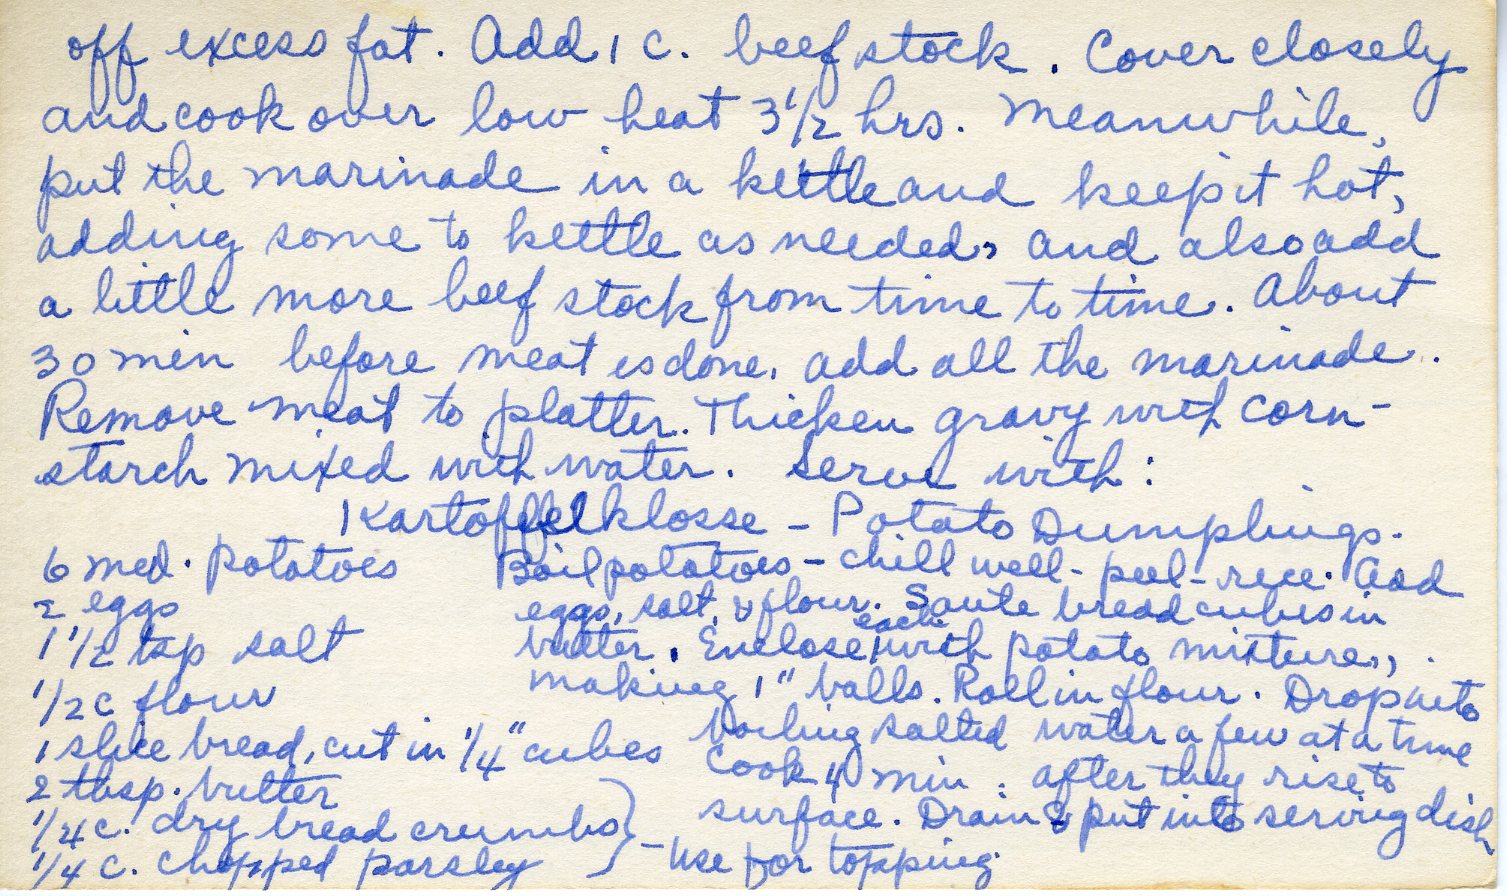 off excess fat. Add 1 c. beef stock. Cover closely
and cook over low heat 3 1/2 hrs. Meanwhile,
put the marinade in a kettle and keep it hot,
adding some to kettle as needed, and also add
a little more beef stock from time to time. About
30 min before meat is done, add all the marinade.
Remove meat to platter. Thicken gravy with corn-
starch mixed with water. Serve with:
Kartoffelklosse - Potato Dumplings.
6 med. potatoes
2 eggs
1 1/2 tsp salt
1/2 c flour
1 slice bread, cut in 1/4" cubes
2 tbsp. butter
1/4 c. dry bread crumbs
1/4 c. chopped parsley } - use for topping.
Boil potatoes - chill well - peel - rice. Add
eggs, salt, & flour. Saute bread cubes in
butter. Enclose each with potato mixture,
making 1" balls. Roll in flour. Drop into
boiling salted water a few at a time
Cook 4 min. after they rise to
surface. Drain & put into serving dish